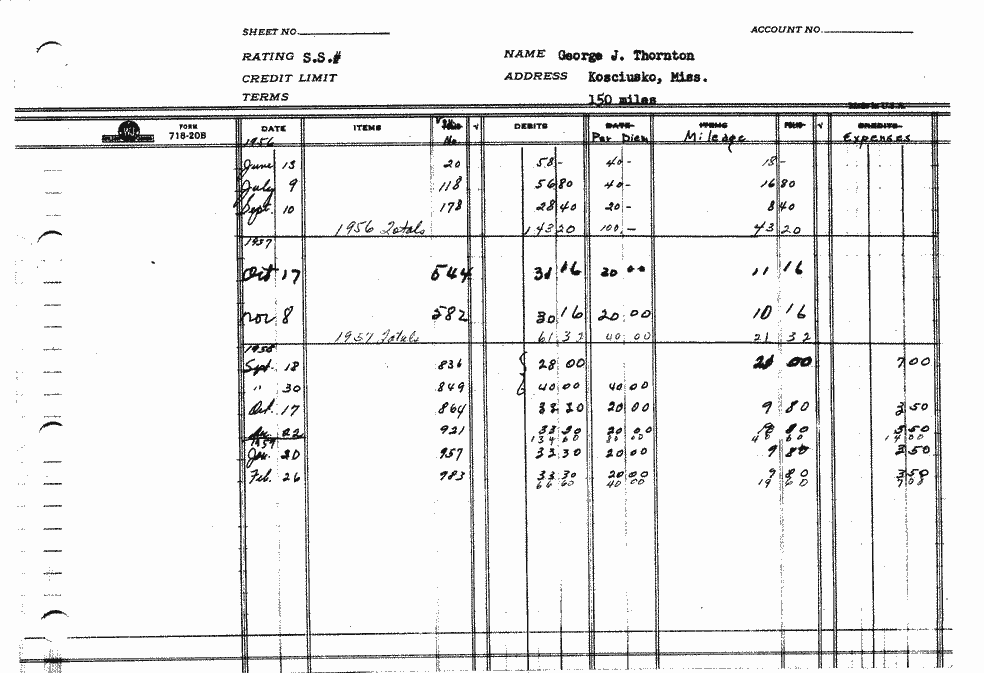 SHEET NO. ACCOUNT NO.
RATING S.S.# NAME George J. Thornton
CREDIT LIMIT ADDRESS Kosciusko, Miss.
TERMS 150 miles
FORM 718-20B DATE ITEMS No. √ DEBITS DATE Per Diem ITEMS Mileage √ CREDITS Expenses
1956
June 13 20 58 - 40 - 18 -
July 9 118 56 80 40 - 16 80
Sept. 10 178 28 40 20 - 8 40
1956 Totals 143 20 100 - 43 20
1957
Oct 17 544 31 16 20 00 11 16
Nov 8 582 30 16 20 00 10 16
1957 Totals 61 32 40 00 21 32
1958
Sept. 18 836 28 00 21 00 7 00
" 30 849 40 00 40 00
Oct. 17 864 33 30 20 00 9 80 3 50
22 921 33 30 20 00 9 80 3 50
134 60 80 00 40 60 14 00
1959
Jan. 20 957 33 30 20 00 9 80 3 50
Feb. 26 983 33 30 20 00 9 80 3 50
66 60 40 00 19 60 7 00